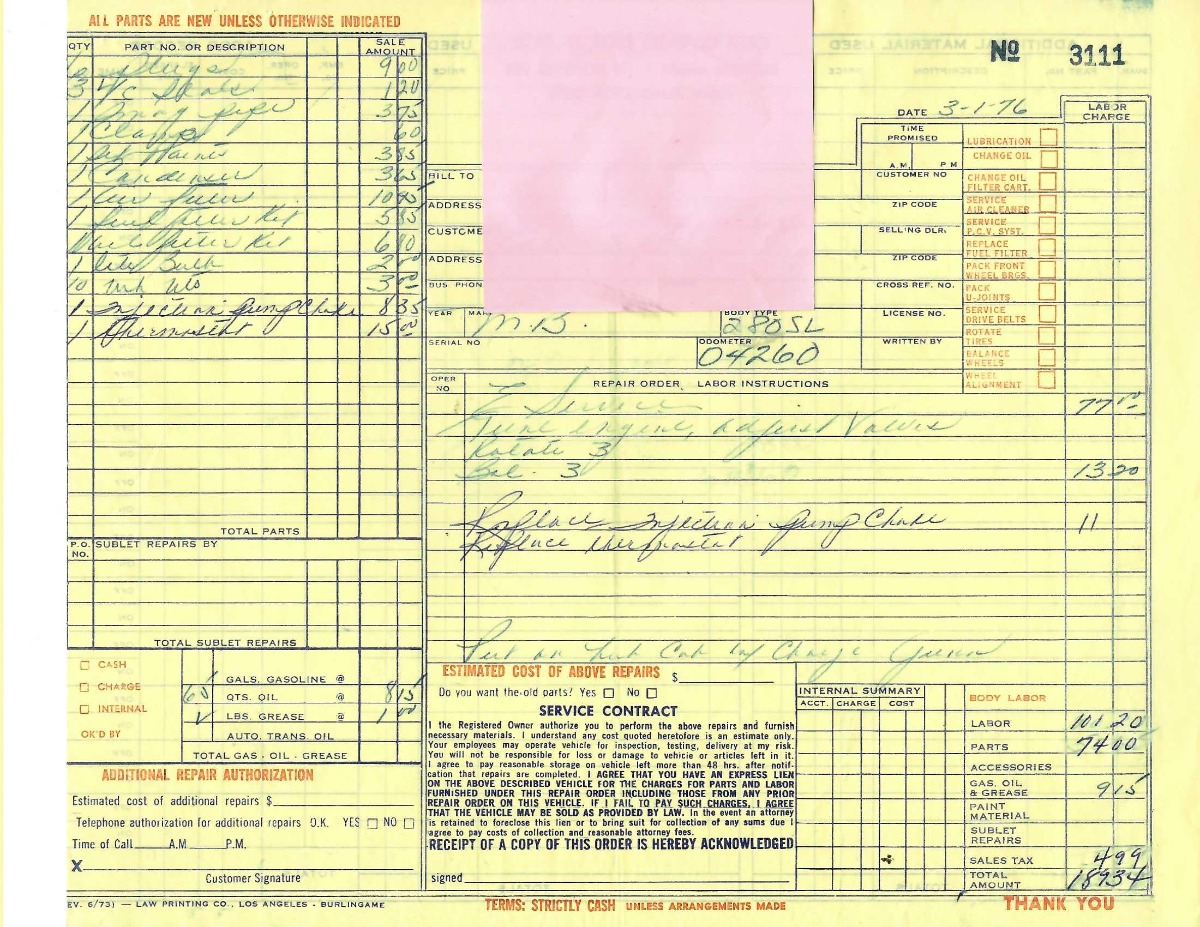 ALL PARTS ARE NEW UNLESS OTHERWISE INDICATED
QTY PART NO. OR DESCRIPTION SALE AMOUNT
6 Plugs 9 00
3 V/C Seals 1 20
1 pipe 3 75
1 Clamp 60
1 Set Points 3 85
1 Condenser 3 65
1 Air filter
1 Fuel filter Kit 5 85
1 filter Kit
1 Bulb
10 Wh Wts 3 00
1 Injection Pump Choke 8 35
1 Thermostat 15 00
TOTAL PARTS
P.O. NO. SUBLET REPAIRS BY
TOTAL SUBLET REPAIRS
CASH
CHARGE
INTERNAL
OK'D BY
GALS. GASOLINE @
QTS. OIL @ 8 15
LBS. GREASE @ 1 00
AUTO. TRANS. OIL
TOTAL GAS - OIL - GREASE
ADDITIONAL REPAIR AUTHORIZATION
Estimated cost of additional repairs $
Telephone authorization for additional repairs O.K. YES NO
Time of Call A.M P.M.
X
Customer Signature
EV. 6/73) — LAW PRINTING CO., LOS ANGELES - BURLINGAME
No 3111
DATE 3-1-76
LABOR CHARGE
TIME PROMISED
A.M. P M
BILL TO
CUSTOMER NO
ADDRESS
ZIP CODE
CUSTOME
SELLING DLR.
ADDRESS
ZIP CODE
BUS PHON
CROSS REF. NO.
YEAR MA M.B. BODY TYPE 280SL LICENSE NO.
SERIAL NO ODOMETER 04260 WRITTEN BY
LUBRICATION
CHANGE OIL
CHANGE OIL FILTER CART.
SERVICE AIR CLEANER
SERVICE P.C.V. SYST.
REPLACE FUEL FILTER
PACK FRONT WHEEL BRGS.
PACK U-JOINTS
SERVICE DRIVE BELTS
ROTATE TIRES
BALANCE WHEELS
WHEEL ALIGNMENT
OPER NO REPAIR ORDER, LABOR INSTRUCTIONS
Service 77 00
Tune engine, adjust Valves
Rotate 3
Bal. 3 13 20
Replace Injection Pump Choke 11
Replace thermostat
Put on hub Cap
ESTIMATED COST OF ABOVE REPAIRS $
Do you want the old parts? Yes No
SERVICE CONTRACT
I the Registered Owner authorize you to perform the above repairs and furnish
necessary materials. I understand any cost quoted heretofore is an estimate only.
Your employees may operate vehicle for inspection, testing, delivery at my risk.
You will not be responsible for loss or damage to vehicle or articles left in it.
I agree to pay reasonable storage on vehicle left more than 48 hrs. after notif-
cation that repairs are completed. I AGREE THAT YOU HAVE AN EXPRESS LIEN
ON THE ABOVE DESCRIBED VEHICLE FOR THE CHARGES FOR PARTS AND LABOR
FURNISHED UNDER THIS REPAIR ORDER INCLUDING THOSE FROM ANY PRIOR
REPAIR ORDER ON THIS VEHICLE. IF I FAIL TO PAY SUCH CHARGES, I AGREE
THAT THE VEHICLE MAY BE SOLD AS PROVIDED BY LAW. In the event an attorney
is retained to foreclose this lien or to bring suit for collection of any sums due I
agree to pay costs of collection and reasonable attorney fees.
RECEIPT OF A COPY OF THIS ORDER IS HEREBY ACKNOWLEDGED
signed
INTERNAL SUMMARY
ACCT. CHARGE COST
BODY LABOR
LABOR 101 20
PARTS 74 00
ACCESSORIES
GAS, OIL & GREASE 9 15
PAINT MATERIAL
SUBLET REPAIRS
SALES TAX 4 99
TOTAL AMOUNT 189 34
TERMS: STRICTLY CASH UNLESS ARRANGEMENTS MADE
THANK YOU